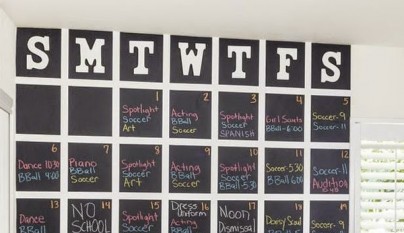 S M T W T F S
1
Spotlight
Soccer
Art
2
Acting
BBall
Soccer
3
Spotlight
Soccer
SPANISH
4
Girl Scouts
BBall-6:00
5
Soccer-9
Soccer-11
6
Dance 10:30
BBall 4:00
7
Piano
BBall
Soccer
8
Spotlight
Soccer
Art
9
Acting
BBall
Soccer
10
Spotlight
Soccer
BBall-5:30
11
Soccer-5:30
BBall 6:00
12
Soccer-11
Audition
13
Dance
BBall
14
NO
SCHOOL
15
Spotlight
Soccer
16
Dress
Uniform
Acting
17
Noon
Dismissal
18
19
Soccer-9